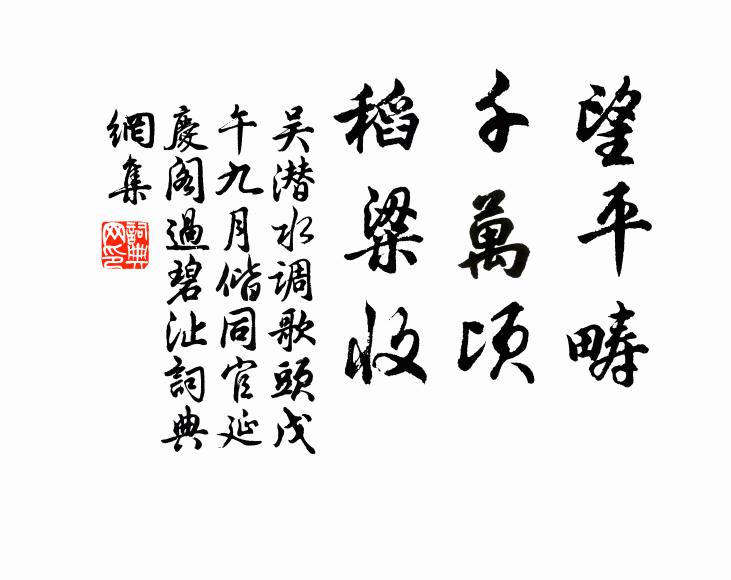 望平疇
千萬頃
稻粱收
吴潜水调歌頭戊
午九月偕同官延
慶阁過碧沚詞典
網集
詞典
网印